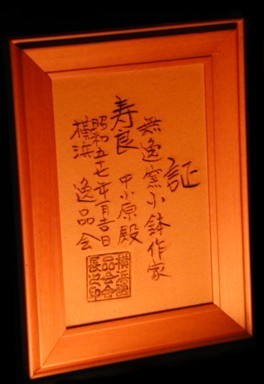 証
無逸窯小鉢作家
寿良 中小原殿
昭和五十七年一月吉日
横浜 逸品会